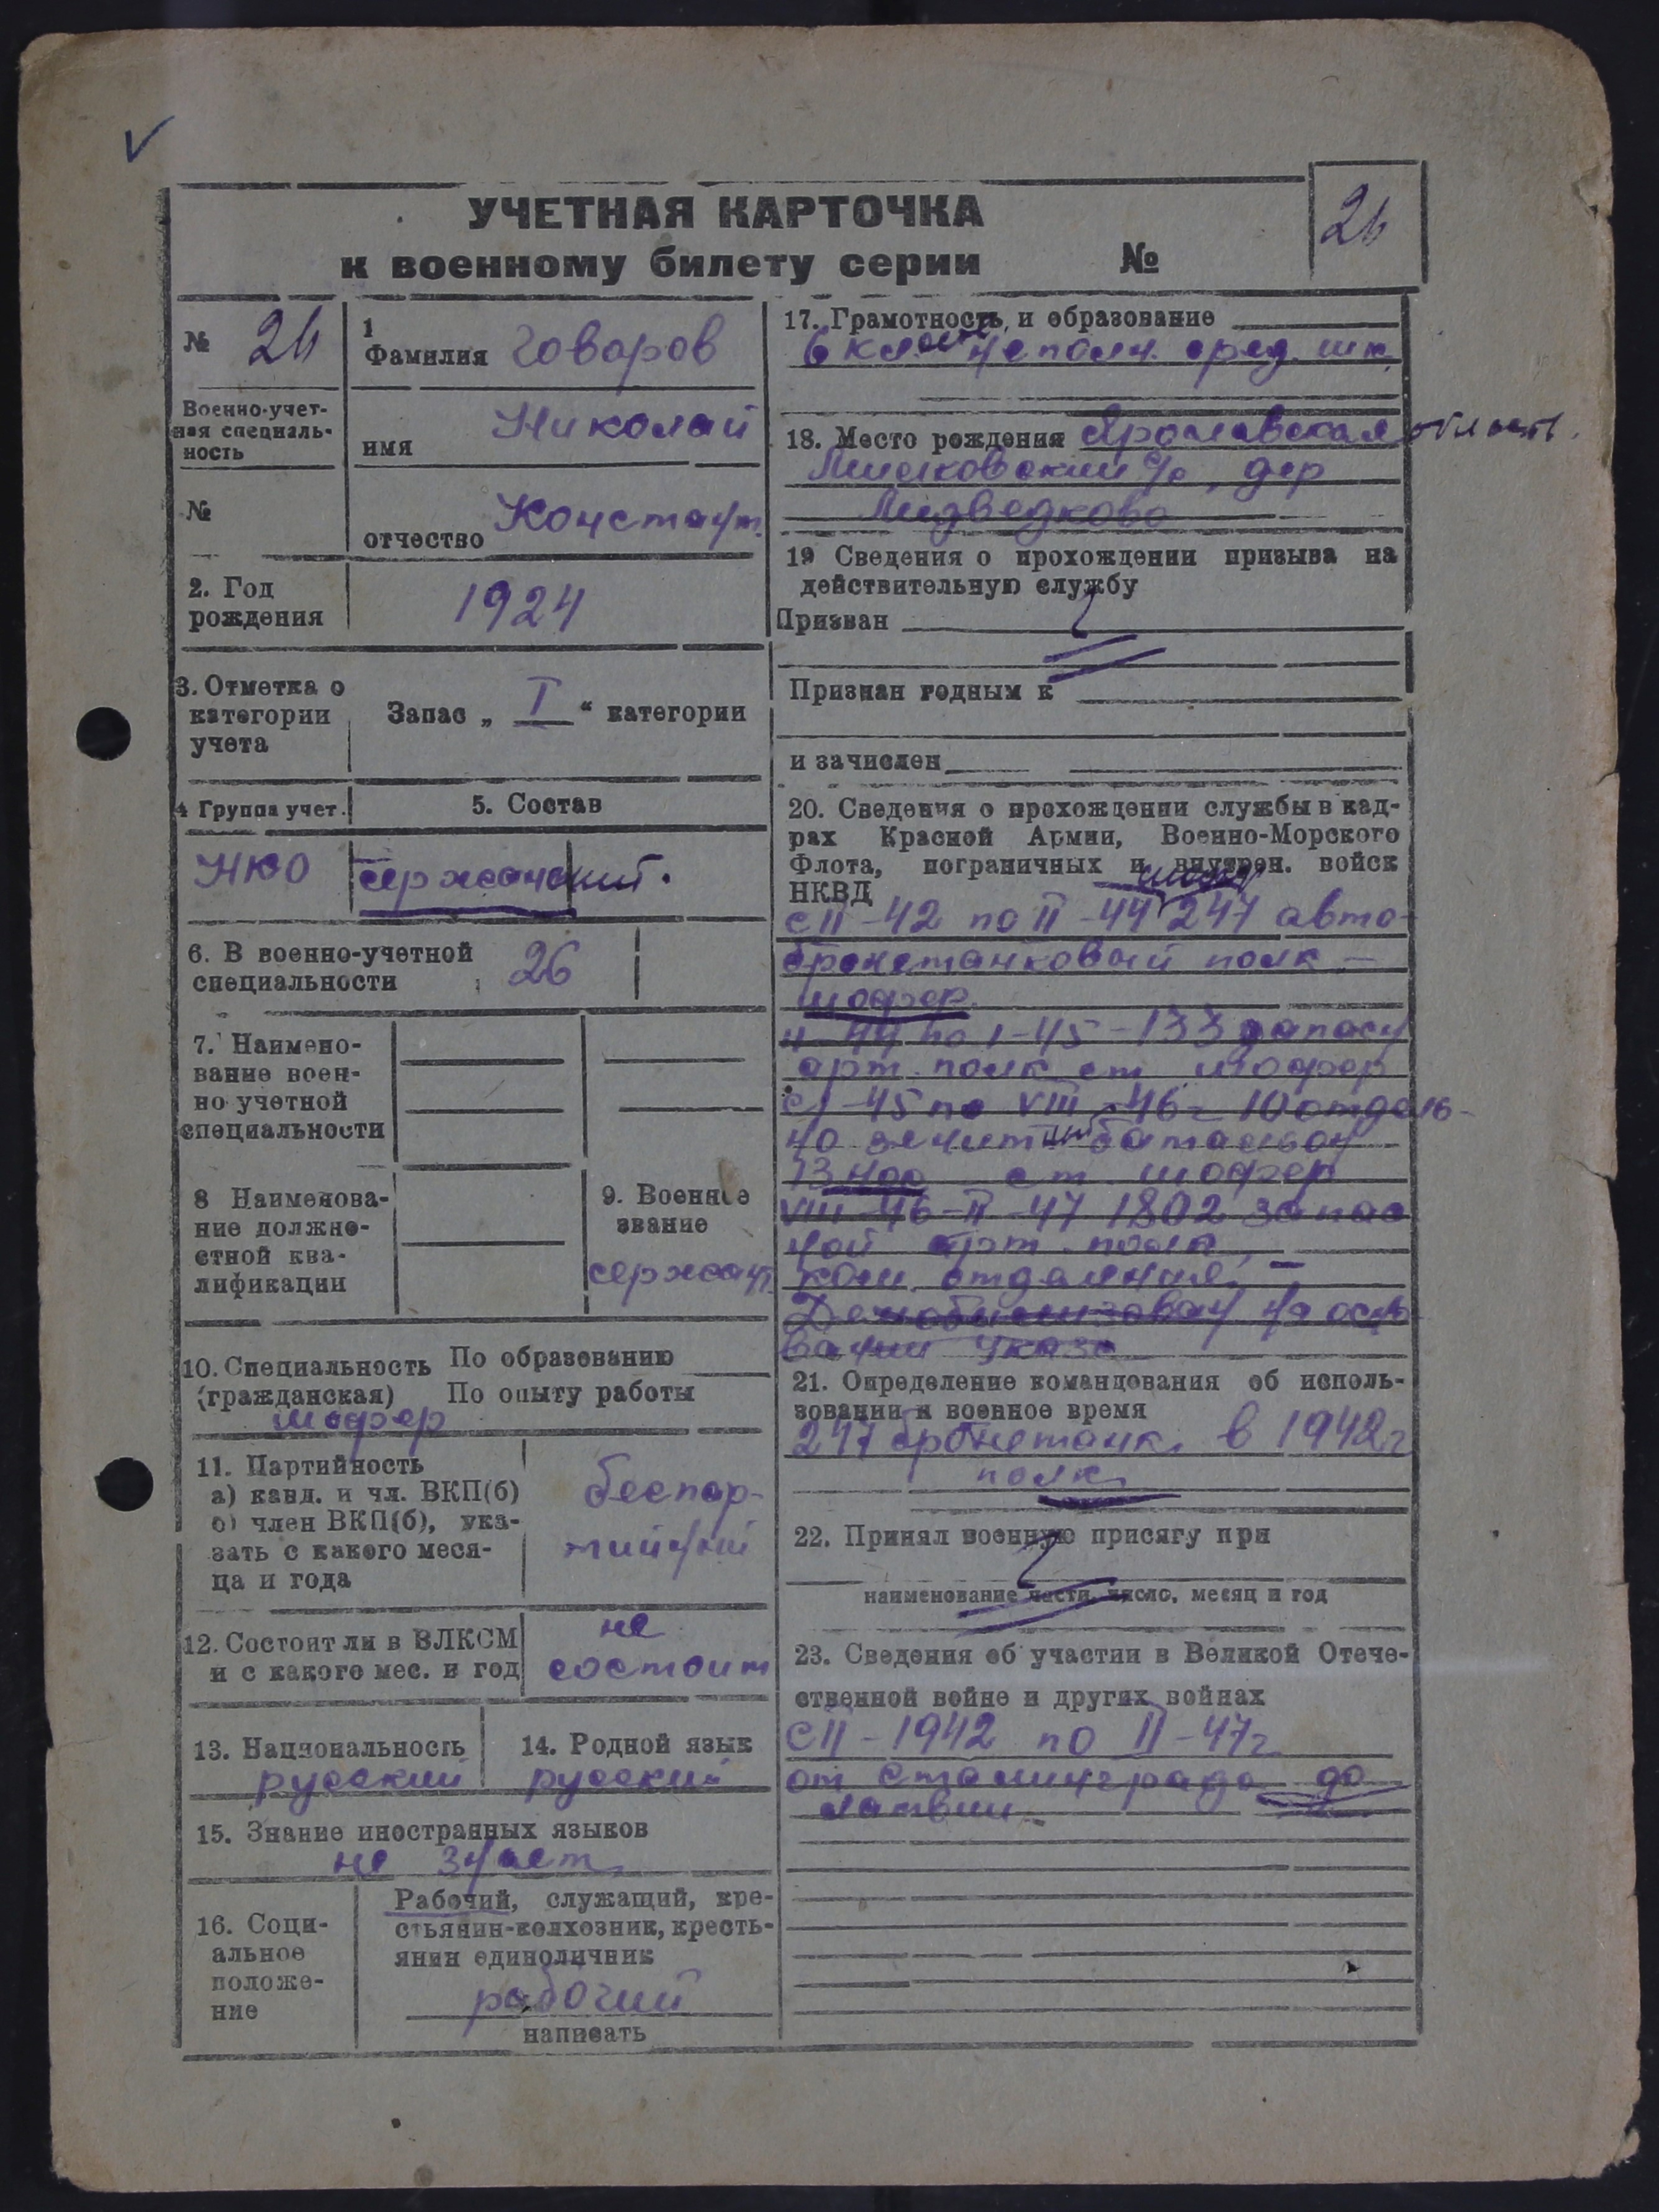 УЧЕТНАЯ КАРТОЧКА
к военному билету серии №
26
№ 26
Военно-учет-
ная специаль-
ность
№
1
Фамилия Говоров
имя Николай
отчество Констант.
2. Год
рождения
1924
3. Отметка о
категории
учета
Запас „ I “ категории
4 Группа учет.
5. Состав
НКО
сержанский.
6. В военно-учетной
специальности
26
7. Наимено-
вание воен-
но учетной
специальности
8 Наименова-
ние должно-
стной ква-
лификации
9. Военное
звание
сержант
10. Специальность По образованию
(гражданская) По опыту работы
шофер
11. Партийность
а) канд. и чл. ВКП(б)
б) член ВКП(б), ука-
зать с какого меся-
ца и года
беспар-
тийный
12. Состоит ли в ВЛКСМ
и с какого мес. и год
не
состоит
13. Национальность
русский
14. Родной язык
русский
15. Знание иностранных языков
не знает
16. Соци-
альное
положе-
ние
Рабочий, служащий, кре-
стьянин-колхозник, кресть-
янин единоличник
рабочий
написать
17. Грамотность, и образование
6 клас неполн. сред. шк.
18. Место рождения Ярославская область.
с/с, дер
Медведково
19 Сведения о прохождении призыва на
действительную службу
Призван
Признан годным к
и зачислен
20. Сведения о прохождении службы в кад-
рах Красной Армии, Военно-Морского
Флота, пограничных и внутрен. войск
НКВД
с II-42 по II-44 247 авто-
бронетанковый полк —
шофер
II-44 по I-45-133 запасн
арт. полк ст шофер
с I-45 по VIII-46г 10 отдель-
но зенитный батальон
ст. шофер
VIII-46-II-47 1802 запас
ной арт. полк,
ком. отделения, —
Демобилизован на осно-
вании указа
21. Определение командования об исполь-
зовании в военное время
247 бронетанк. в 1942г
полк.
22. Принял военную присягу при
наименование части, число, месяц и год
23. Сведения об участии в Великой Отече-
ственной войне и других войнах
с II-1942 по II-47г
от Сталинграда до
Латвии.